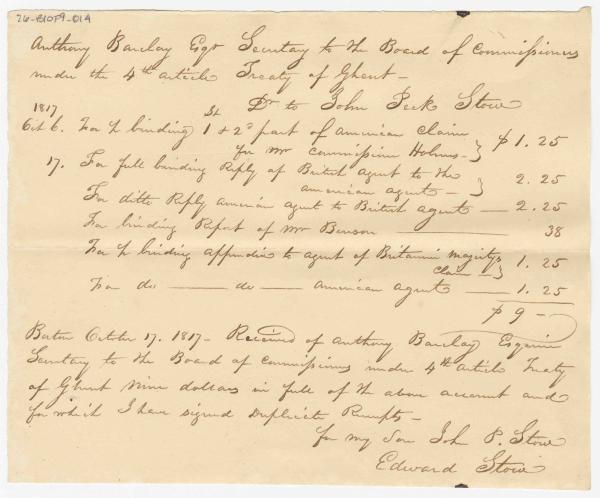 76-E10F9-01A
Anthony Barclay Esqr Secretary to the Board of Commissioners
under the 4th article Treaty of Ghent —
Dr to John Peck Stow
1817
Oct 6. For ½ binding 1st & 2d part of American Claim
for Mr Commissioner Holmes — } $ 1.25
17. For full binding Reply of British agent to the
american agent — } 2.25
For ditto Reply American agent to British agent — 2.25
For binding Report of Mr Benson — 38
For ½ binding appendix to agent of Britannic Majestys
Claim — } 1.25
For do — do — American agent — 1.25
$ 9 —
Boston October 17. 1817 — Received of Anthony Barclay Esquire
Secretary to the Board of Commissioners under 4th article Treaty
of Ghent Nine dollars in full of the above account and
for which I have signed Duplicate Receipts —
for my Son John P. Stow
Edward Stow